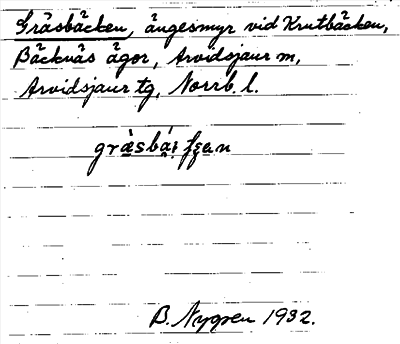 Gräsbäcken, ängesmyr vid Krutbäcken,
Bäcknäs ägor, Arvidsjaur m,
Arvidsjaur tg, Norrb. l.
B. Nygren 1932.